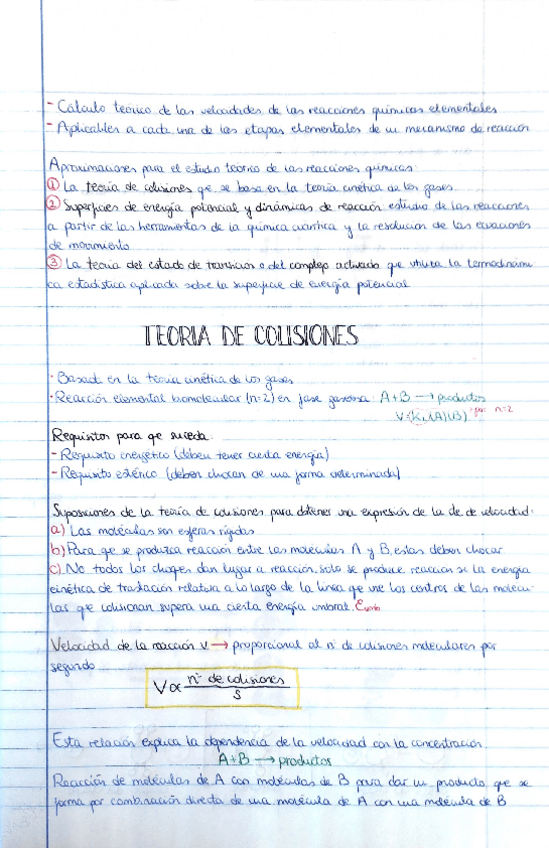 - Cálculo teórico de las velocidades de las reacciones químicas elementales
- Aplicables a cada una de las etapas elementales de un mecanismo de reacción
Aproximaciones para el estudio teórico de las reacciones químicas:
① La teoría de colisiones qe se basa en la teoría cinética de los gases.
② Superficies de energía potencial y dinámicas de reacción estudio de las reacciones
a partir de las herramientas de la química cuántica y la resolución de las ecuaciones
de movimiento
③ La teoría del estado de transición o del complejo activado que utiliza la termodinámi
ca estadística aplicada sobre la superficie de energía potencial
TEORIA DE COLISIONES
· Basada en la teoría cinética de los gases
· Reacción elemental biomolecular (n=2) en fase gaseosa: A+B → productos
n=2
Requisitos para qe suceda:
- Requisito energético (deben tener cierta energía)
- Requisito estérico (deben chocar de una forma determinada)
Suposiciones de la teoría de colisiones para obtener una expresión de la de velocidad:
a) Las moléculas son esferas rígidas
b) Para qe se produzca reacción entre las moléculas A y B, estas deben chocar
c) No todos los choques dan lugar a reacción, solo se produce reacción si la energía
cinética de traslación relativa a lo largo de la línea qe une los centros de las molécu-
las qe colisionan supera una cierta energía umbral.
Velocidad de la reacción v → proporcional al nº de colisiones moleculares por
segundo
V ∝ nº de colisiones / s
Esta relación explica la dependencia de la velocidad con la concentración.
A+B → productos
Reacción de moléculas de A con moléculas de B para dar un producto qe se
forma por combinación directa de una molécula de A con una molécula de B